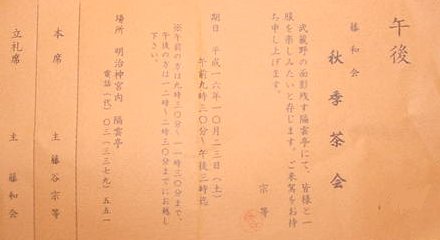 午後
藤和会
秋季茶会
武蔵野の面影残す隔雲亭にて、皆様と一
服を楽しみたいと存じます。ご来駕をお待
ち申し上げます。
宗等
期日 平成一六年一〇月二三日(土)
午前九時三〇分〜午後三時迄
※午前の方は九時三〇分〜一一時三〇分まで、
午後の方は一二時〜二時三〇分までにお越し
下さい。
場所 明治神宮内 隔雲亭
電話(代)〇三(三三七九)五五一
本席 主 藤谷宗等
立礼席 主 藤和会